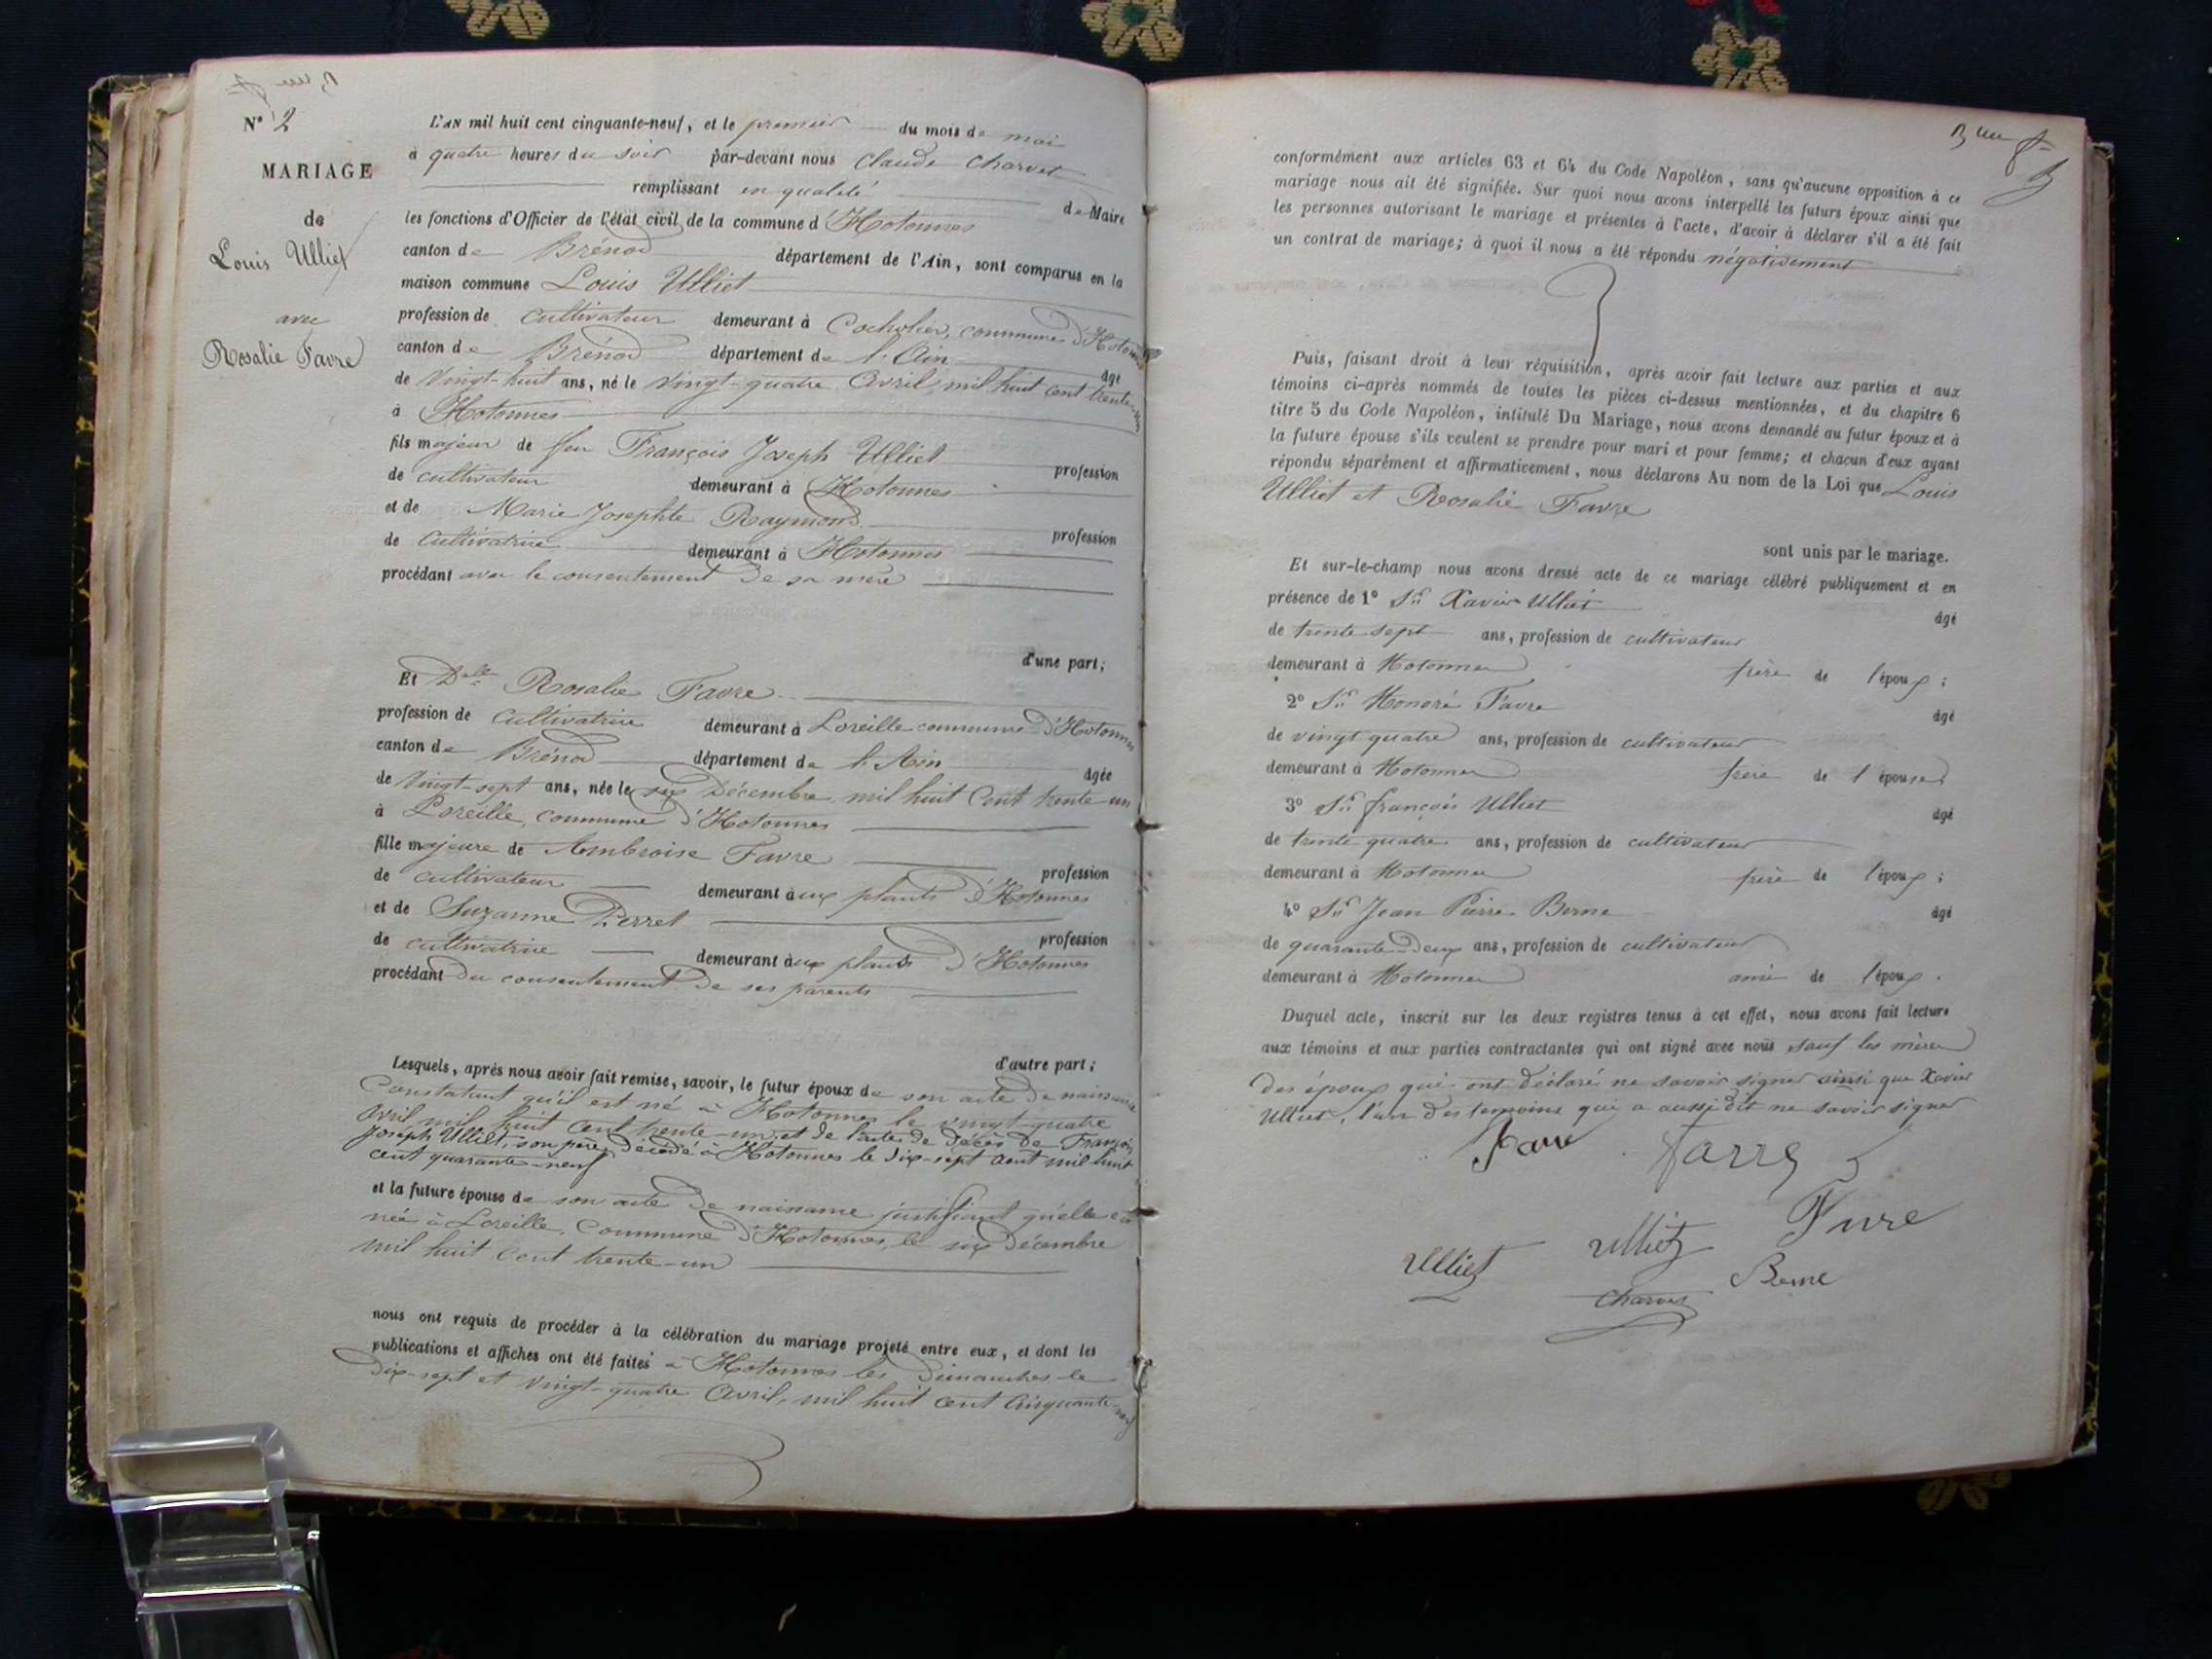 N° 2
MARIAGE
de
Louis Ulliet
avec
Rosalie Favre
L'AN mil huit cent cinquante-neuf, et le premier du mois de mai
à quatre heures du soir par-devant nous Claude Charvet
remplissant en qualité de Maire
les fonctions d'Officier de l'état civil de la commune d'Hotonnes
canton de Brénod département de l'Ain, sont comparus en la
maison commune Louis Ulliet
profession de cultivateur demeurant à commune d'Hotonnes
canton de Brénod département de l'Ain âgé
de vingt-huit ans, né le vingt-quatre Avril mil huit cent trente-un
à Hotonnes
fils majeur de feu François Joseph Ulliet profession
de cultivateur demeurant à Hotonnes
et de Marie Josephte Raymond profession
de cultivatrice demeurant à Hotonnes
procédant avec le consentement de sa mère
d'une part;
Et Delle Rosalie Favre
profession de cultivatrice demeurant à Loreille commune d'Hotonnes
canton de Brénod département de l'Ain âgée
de vingt-sept ans, née le six Décembre mil huit cent trente-un
à Loreille, commune d'Hotonnes
fille majeure de Ambroise Favre profession
de cultivateur demeurant aux plants d'Hotonnes
et de Suzanne Perret profession
de cultivatrice demeurant aux plants d'Hotonnes
procédant du consentement de ses parents
d'autre part;
Lesquels, après nous avoir fait remise, savoir, le futur époux de son acte de naissance
constatant qu'il est né à Hotonnes le vingt-quatre
avril mil huit cent trente-un, et de l'acte de décès de François
Joseph Ulliet, son père, décédé à Hotonnes le dix-sept août mil huit
cent quarante-neuf
et la future épouse de son acte de naissance justifiant qu'elle est
née à Loreille, commune d'Hotonnes, le six décembre
mil huit cent trente-un
nous ont requis de procéder à la célébration du mariage projeté entre eux, et dont les
publications et affiches ont été faites à Hotonnes les dimanches le
dix-sept et vingt-quatre Avril, mil huit cent cinquante-neuf
conformément aux articles 63 et 64 du Code Napoléon, sans qu'aucune opposition à ce
mariage nous ait été signifiée. Sur quoi nous avons interpellé les futurs époux ainsi que
les personnes autorisant le mariage et présentes à l'acte, d'avoir à déclarer s'il a été fait
un contrat de mariage; à quoi il nous a été répondu négativement
Puis, faisant droit à leur réquisition, après avoir fait lecture aux parties et aux
témoins ci-après nommés de toutes les pièces ci-dessus mentionnées, et du chapitre 6
titre 5 du Code Napoléon, intitulé Du Mariage, nous avons demandé au futur époux et à
la future épouse s'ils veulent se prendre pour mari et pour femme; et chacun d'eux ayant
répondu séparément et affirmativement, nous déclarons Au nom de la Loi que Louis
Ulliet et Rosalie Favre
sont unis par le mariage.
Et sur-le-champ nous avons dressé acte de ce mariage célébré publiquement et en
présence de 1° Sr Xavier Ulliet âgé
de trente sept ans, profession de cultivateur
demeurant à Hotonnes frère de l'époux;
2° Sr Honoré Favre âgé
de vingt quatre ans, profession de cultivateur
demeurant à Hotonnes frère de l'épouse
3° Sr françois Ulliet âgé
de trente quatre ans, profession de cultivateur
demeurant à Hotonnes frère de l'époux;
4° Sr Jean Pierre Berne âgé
de quarante-deux ans, profession de cultivateur
demeurant à Hotonnes ami de l'époux.
Duquel acte, inscrit sur les deux registres tenus à cet effet, nous avons fait lecture
aux témoins et aux parties contractantes qui ont signé avec nous sauf les mères
des époux qui ont déclaré ne savoir signer ainsi que Xavier
Ulliet, l'un des temoins qui a aussi dit ne savoir signer
Favre Farre
Ulliet Ulliet Favre
Charvet Berne